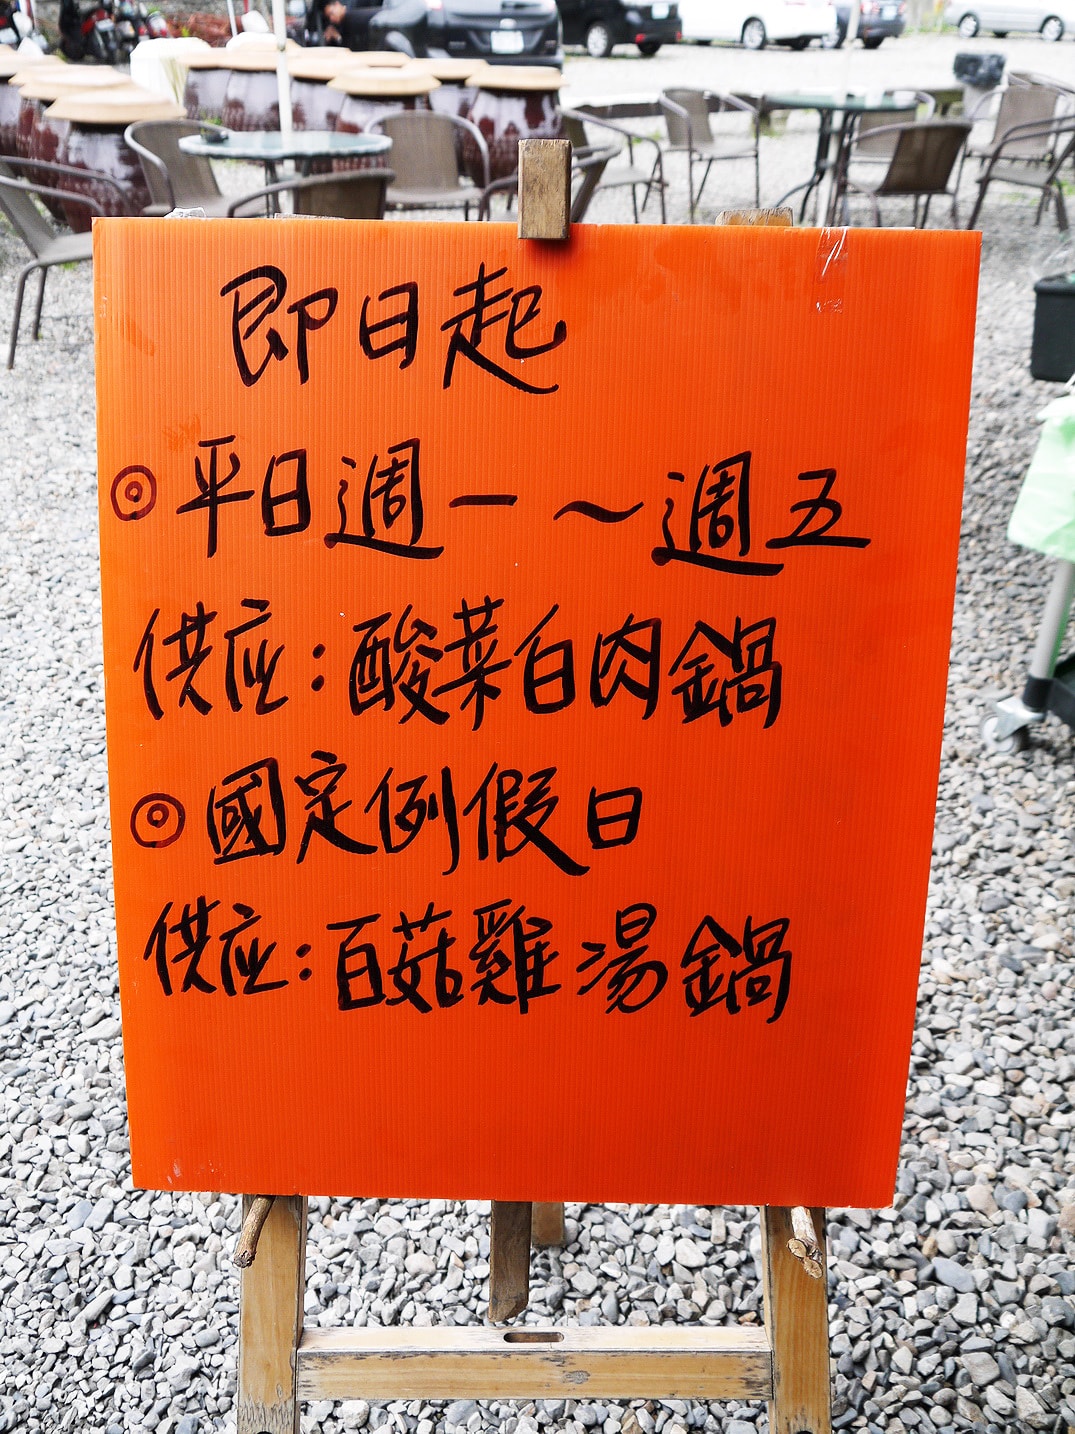 即日起
◎平日週一～週五
供应:酸菜白肉鍋
◎國定例假日
供应:百菇雞湯鍋